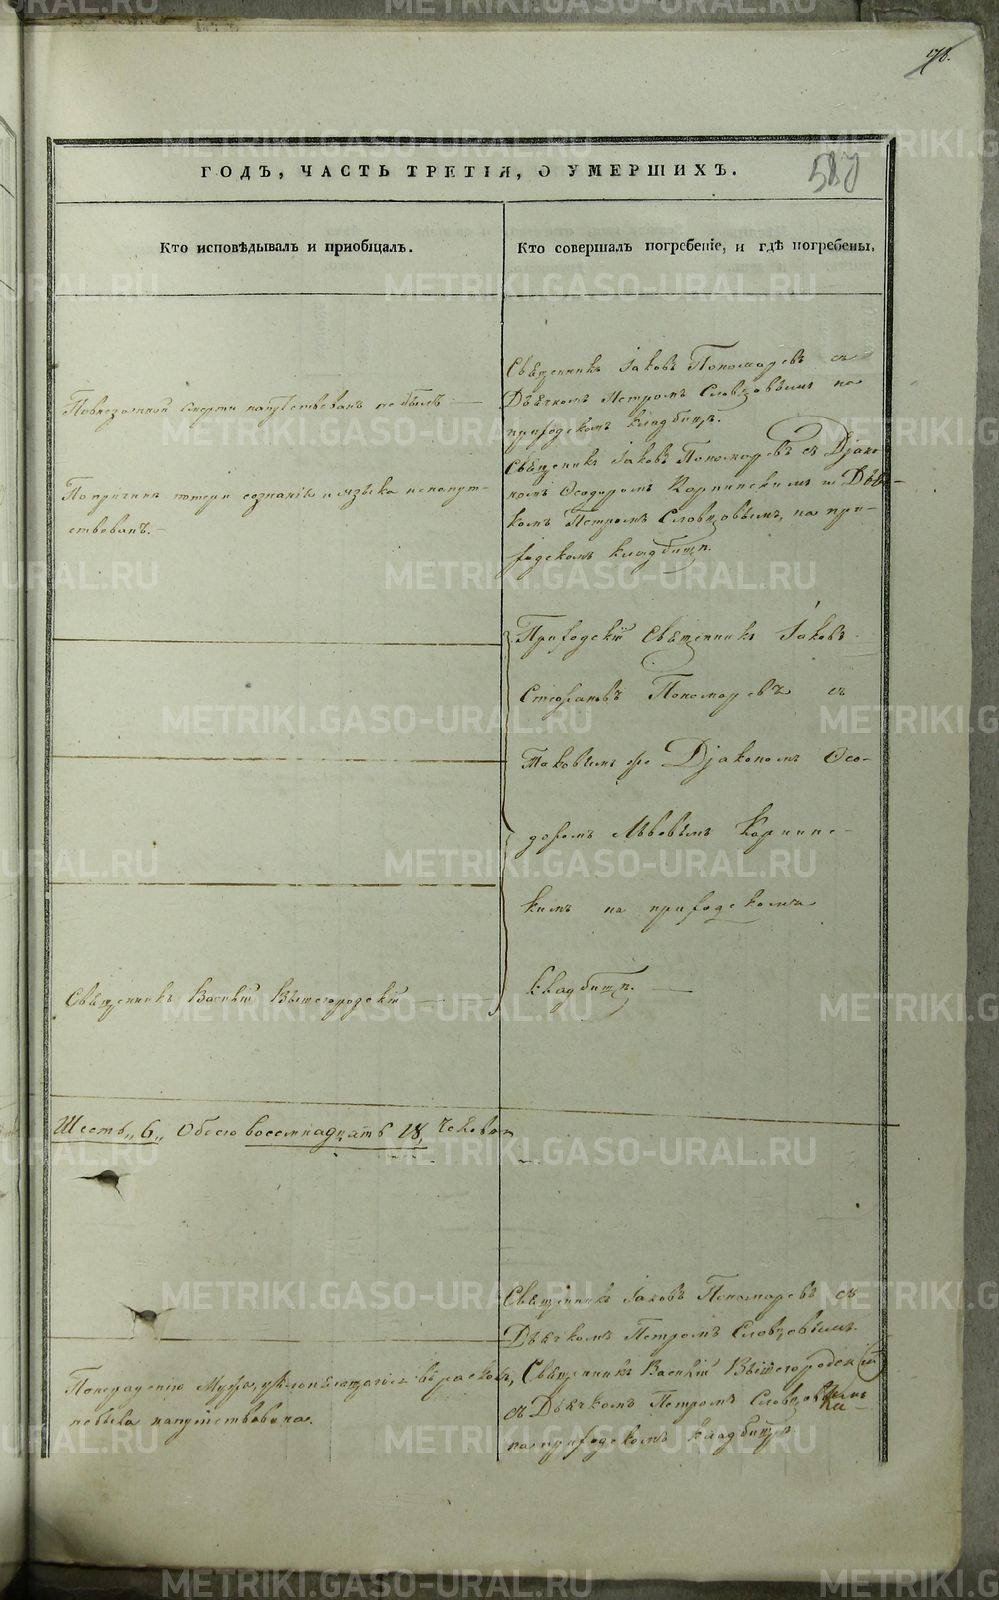 178.
587
ГОДЪ, ЧАСТЬ ТРЕТІЯ, О УМЕРШИХЪ.
Кто исповѣдывалъ и приобщалъ.
Кто совершалъ погребеніе, и гдѣ погребены.
По внезапной смерти напутствованъ не былъ
Священникъ Іаковъ Пономаревъ съ
Дьячкомъ Петромъ Словцовымъ на
приходскомъ кладбищѣ.
По причинѣ потери сознанія и языка не напут-
ствованъ.
Священникъ Іаковъ Пономаревъ съ Діако-
номъ Ѳеодоромъ Карпинскимъ и Дьяч-
комъ Петромъ Словцовымъ, на при-
ходскомъ кладбищѣ.
Приходскій Священникъ Іаковъ
Стефановъ Пономаревъ съ
таковымъ же Діакономъ Ѳео-
доромъ Львовымъ Карпинс-
кимъ на приходскомъ
кладбищѣ.
Священникъ Василій Вышегородскій
Шесть „6„ Обоего восемнадцать 18, человѣкъ
Священникъ Іаковъ Пономаревъ съ
Дьячкомъ Петромъ Словцовымъ.
По нерадѣнію мужа, уклонившагося въ расколъ,
не была напутствована.
Священникъ Василій Вышегородскій
съ Дьячкомъ Петромъ Словцовымъ
на приходскомъ кладбищѣ.
METRIKI.GASO-URAL.RU